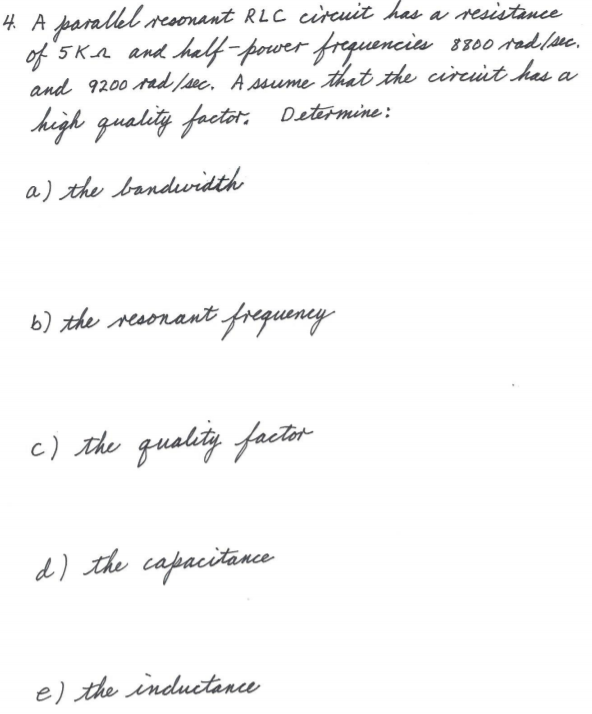 4. A parallel resonant RLC circuit has a resistance
of 5KΩ and half-power frequencies 8800 rad/sec.
and 9200 rad/sec. Assume that the circuit has a
high quality factor. Determine:
a) the bandwidth
b) the resonant frequency
c) the quality factor
d) the capacitance
e) the inductance